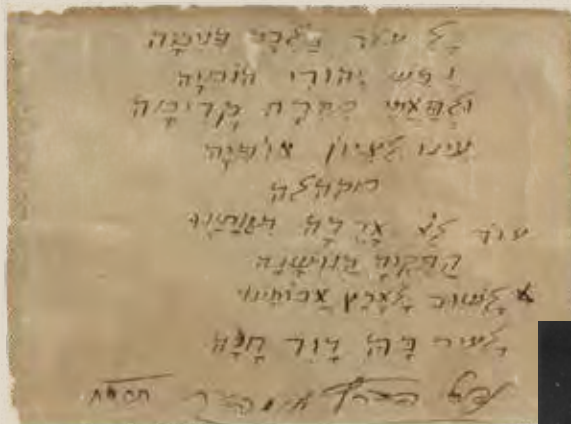 כָּל עוֹד בַּלֵּבָב פְּנִימָה
נֶפֶשׁ יְהוּדִי הוֹמִיָּה
וּלְפַאֲתֵי מִזְרָח קָדִימָה
עינו לְצִיּוֹן צוֹפִיָּה
מקהלה
עוד לֹא אָבְדָה תִּקְוָתֵנוּ
הַתִּקְוָה הַנּוֹשָׁנָה
לָשׁוּב לְאֶרֶץ אֲבוֹתֵינוּ
לְעִיר בָּהּ דָּוִד חָנָה
הערץ אימבער